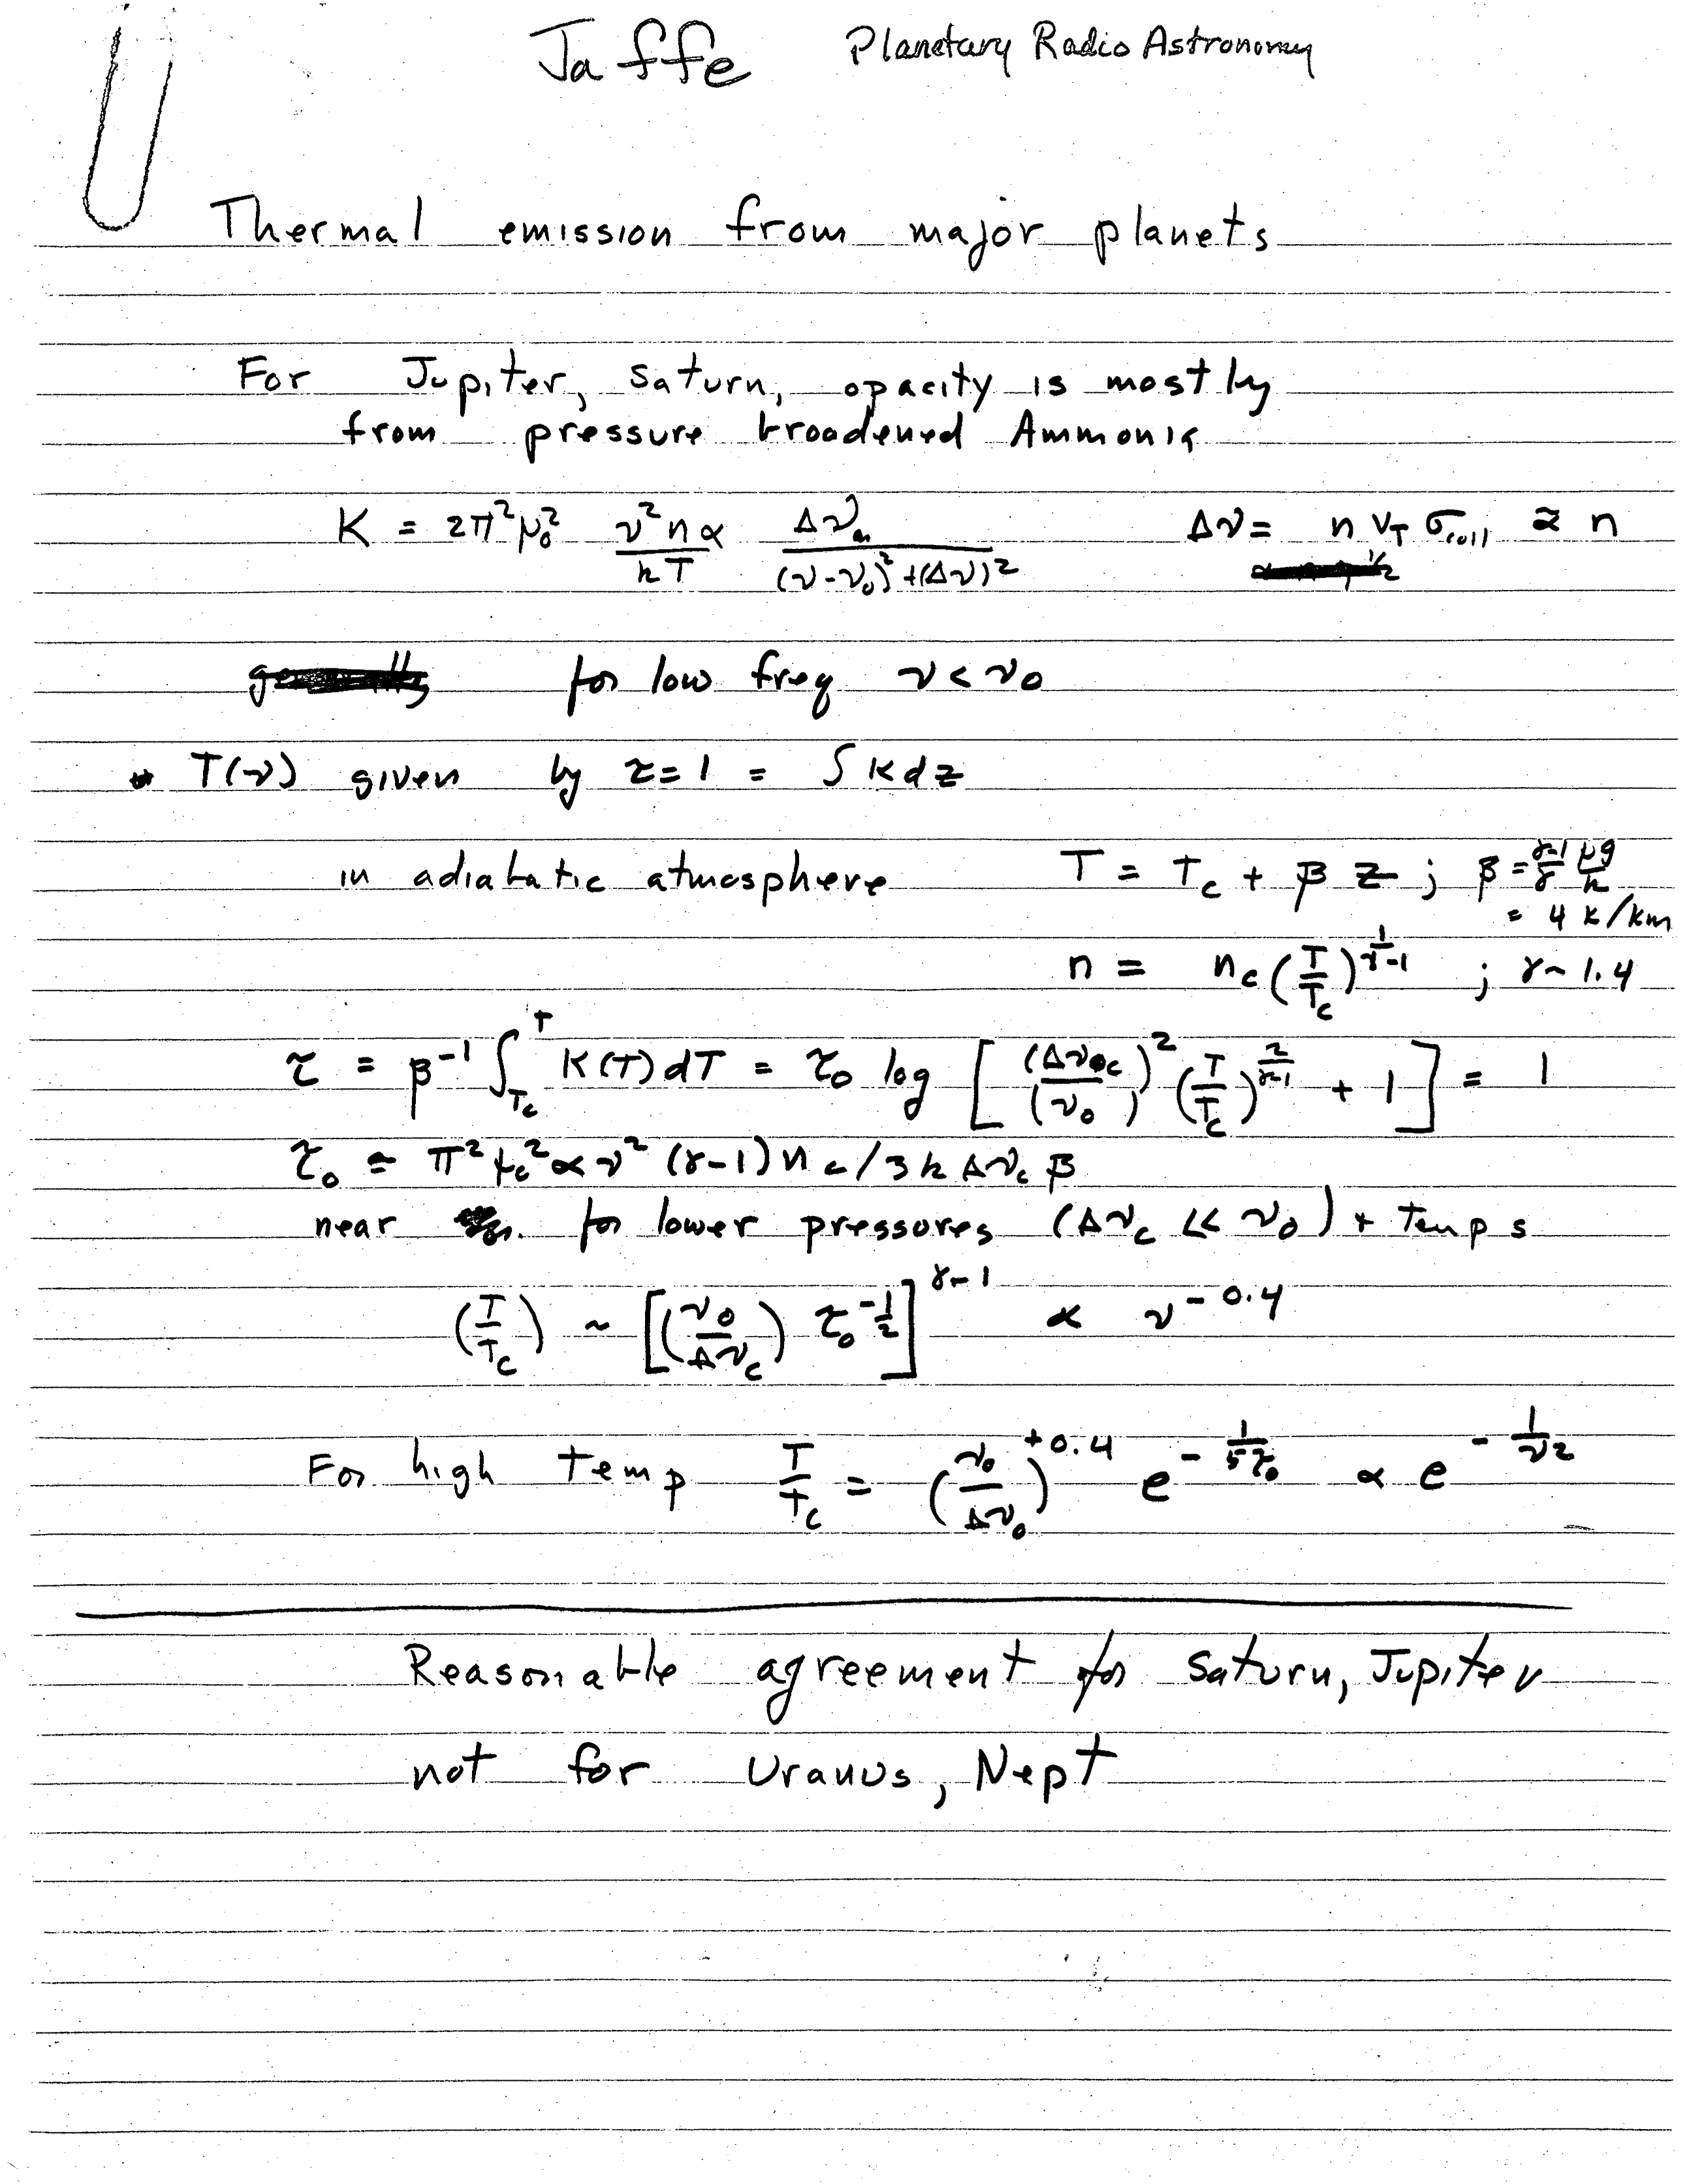 Jaffe Planetary Radio Astronomy
Thermal emission from major planets
For Jupiter, Saturn, opacity is mostly
from pressure broadened Ammonia
K = 2π²μ₀² ν²nα/kT Δν/((ν-ν₀)²+(Δν)²) Δν = n v_T σ_coll ≈ n
for low freq ν < ν₀
T(ν) given by τ=1 = ∫ K dz
in adiabatic atmosphere T = T_c + β z ; β = (γ-1)/γ μg/k
= 4 K/km
n = n_c (T/T_c)^(1/(γ-1)) ; γ ~ 1.4
τ = β⁻¹ ∫_{T_c}^{T} K(T) dT = τ₀ log [ (Δν₀c/ν₀)² (T/T_c)^(2/(γ-1)) + 1 ] = 1
τ₀ = π² μ_c² α ν² (γ-1) n_c / 3k Δν_c β
near for lower pressures (Δν_c << ν₀) + temps
(T/T_c) ~ [(ν₀/Δν_c) τ₀^(-1/2)]^(γ-1) ∝ ν^(-0.4)
For high temp T/T_c = (ν₀/Δν₀)^(+0.4) e^(-1/(5τ₀)) ∝ e^(-1/ν²)
Reasonable agreement for Saturn, Jupiter
not for Uranus, Nept